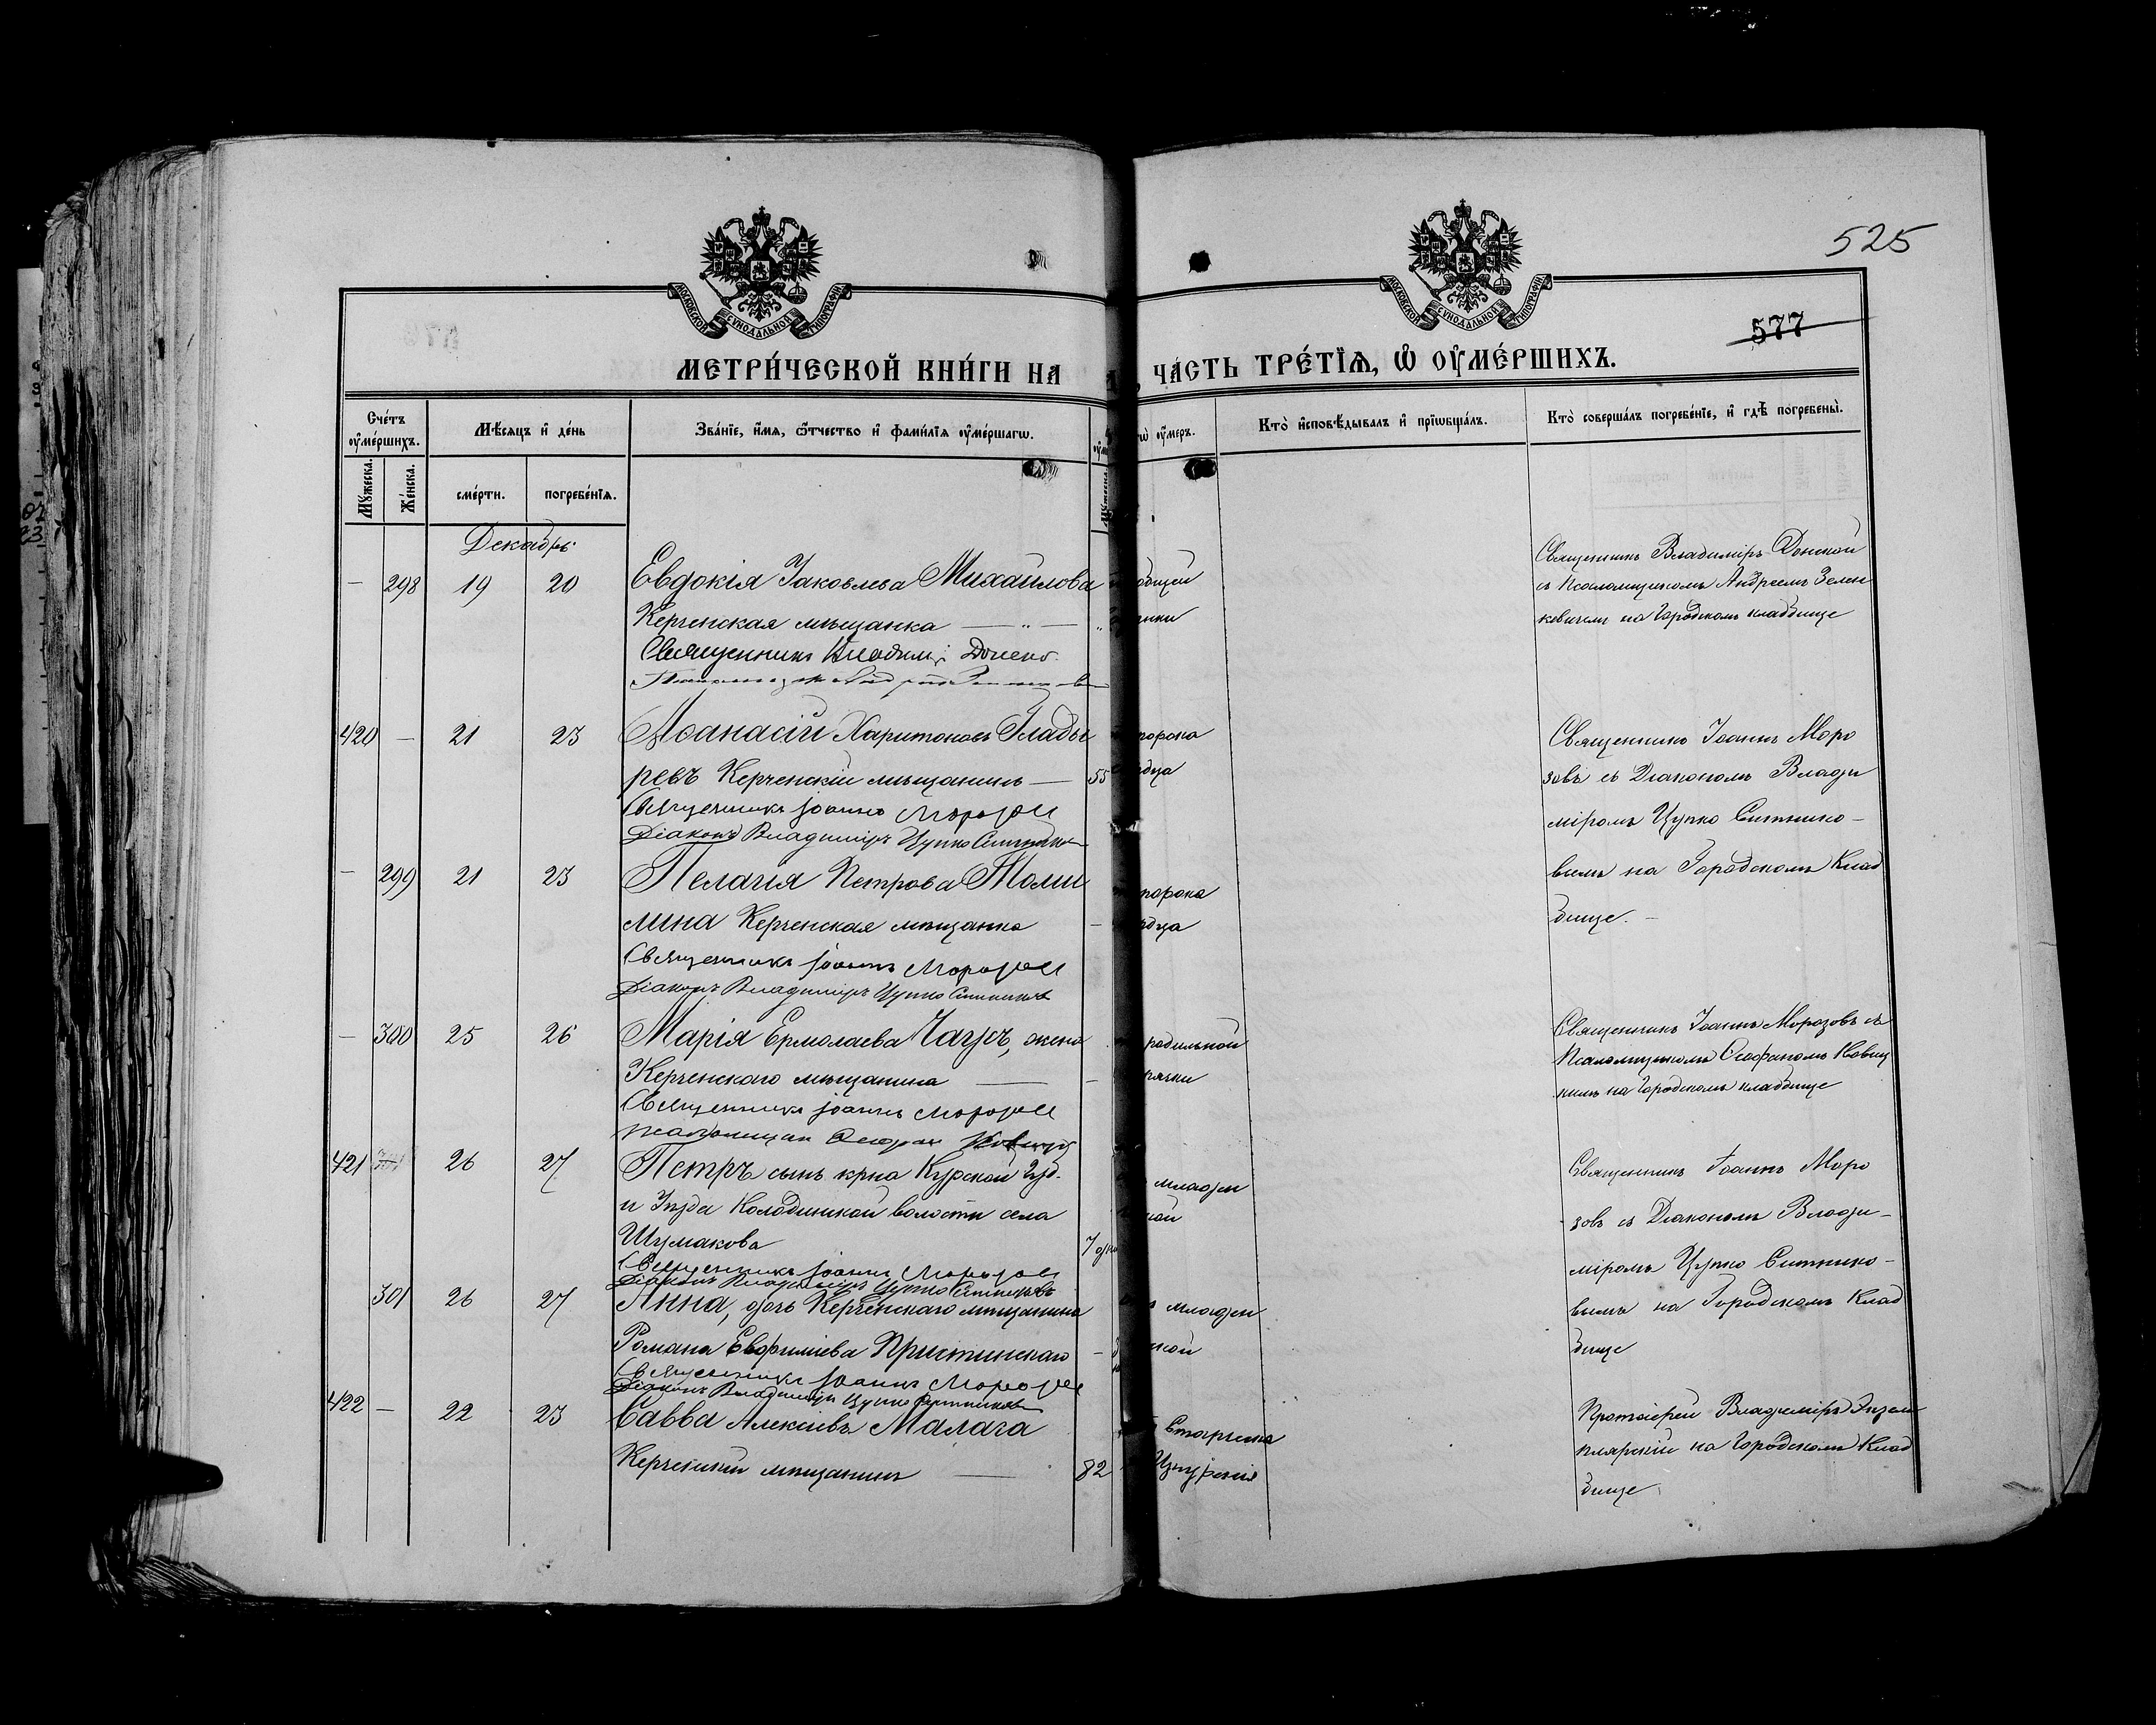 525
577
МОСКОВСКОЙ СѴНОДАЛЬНОЙ ТИПОГРАФІИ
МОСКОВСКОЙ СѴНОДАЛЬНОЙ ТИПОГРАФІИ
МЕТРИ́ЧЕСКОЙ КНИ́ГИ НА , ЧА́СТЬ ТРЕ́ТІѦ, Ѽ ОУ҆МЕ́РШИХЪ.
Сче́тъ оу҆ме́ршихъ.
Мѣ́сяцъ и҆ де́нь
Зва́нїе, и҆́мя, ѻ҆́тчество и҆ фами́лїя оу҆ме́ршагѡ.
оу҆́меръ.
Кто̀ и҆сповѣ́дывалъ и҆ прїѡбща́лъ.
Кто̀ соверша́лъ погребе́нїе, и҆ гдѣ̀ погребены̀.
Мꙋ́жеска.
Же́нска.
сме́рти.
погребе́нїя.
Декабрь
— 298 19 20 Евдокія Іаковлева Михайлова
Керченская мѣщанка — „ —
Священникъ Владимі Донско
Священникъ Владиміръ Донской
съ Псаломщикомъ Андреемъ Зелен
кевичемъ на Городскомъ кладбище
420 — 21 23 Аѳанасій Харитоновъ Глады
ревъ Керченскій мѣщанинъ — 55
Священникъ Іоаннъ Морозов
Діаконъ Владиміръ Цупко Ситников
порока
рдца
Священникъ Іоаннъ Моро
зовъ съ Діакономъ Влади
міромъ Цупко Ситнико-
вымъ на Городскомъ Клад
бище. —
— 299 21 23 Пелагія Петрова Томи
лина Керченская мѣщанка —
Священникъ Іоаннъ Морозов
Діаконъ Владиміръ Цупко Ситников
порока
рдца
— 300 25 26 Марія Ермолаева Чагусъ, жена
Керченскаго мѣщанина — —
Священникъ Іоаннъ Морозов
родильной
рячки
Священникъ Іоаннъ Морозовъ съ
Псаломщикомъ Ѳеофаномъ Ковиц
кимъ на Городскомъ кладбище
421 26 27 Петръ сынъ крна Курской Губ.
и Уѣзда Колодинской волости села
Шумакова 7 дн
Священникъ Іоаннъ Морозов
Діаконъ Владиміръ Цупко Ситниковъ
младен
кой
Священникъ Іоаннъ Моро
зовъ съ Діакономъ Влади-
міромъ Цупко Ситнико-
вымъ на Городскомъ Клад
бище
301 26 27 Анна, дочь Керченскаго мѣщанина
Романа Евфиміева Приетинскаго —
Священникъ Іоаннъ Морозов
Діаконъ Владиміръ Цупко Ситников
младен
ской
422 — 22 23 Савва Алексіевъ Малага
Керченскій мѣщанинъ — 82
Старческа
Протоіерей Владиміръ Экзем
плярскій на Городскомъ Клад
бище